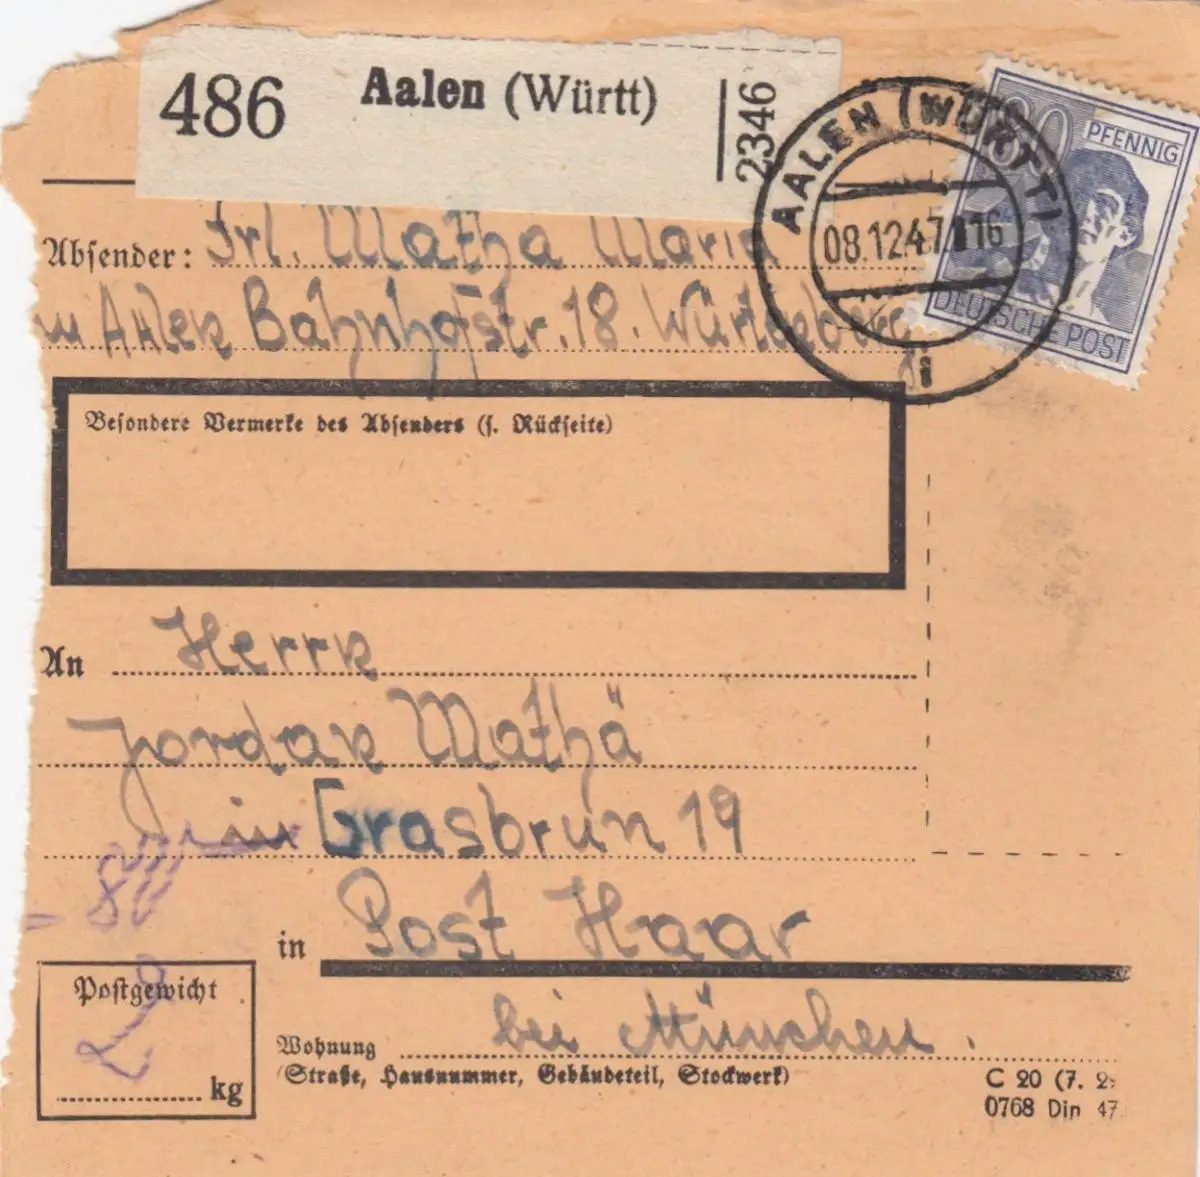 486 Aalen (Württ) 2346
AALEN (WÜRTT)
08.12.47 16
i
80 PFENNIG
DEUTSCHE POST
Absender: Frl. Matha Maria
in Aalen Bahnhofstr. 18. Württenberg
Besondere Vermerke des Absenders (s. Rückseite)
An Herrn
Jordan Mathä
in Grasbrun 19
in Post Haar
bei München.
Postgewicht
kg
Wohnung
(Straße, Hausnummer, Gebäudeteil, Stockwerk)
C 20 (7. 2
0768 Din 47